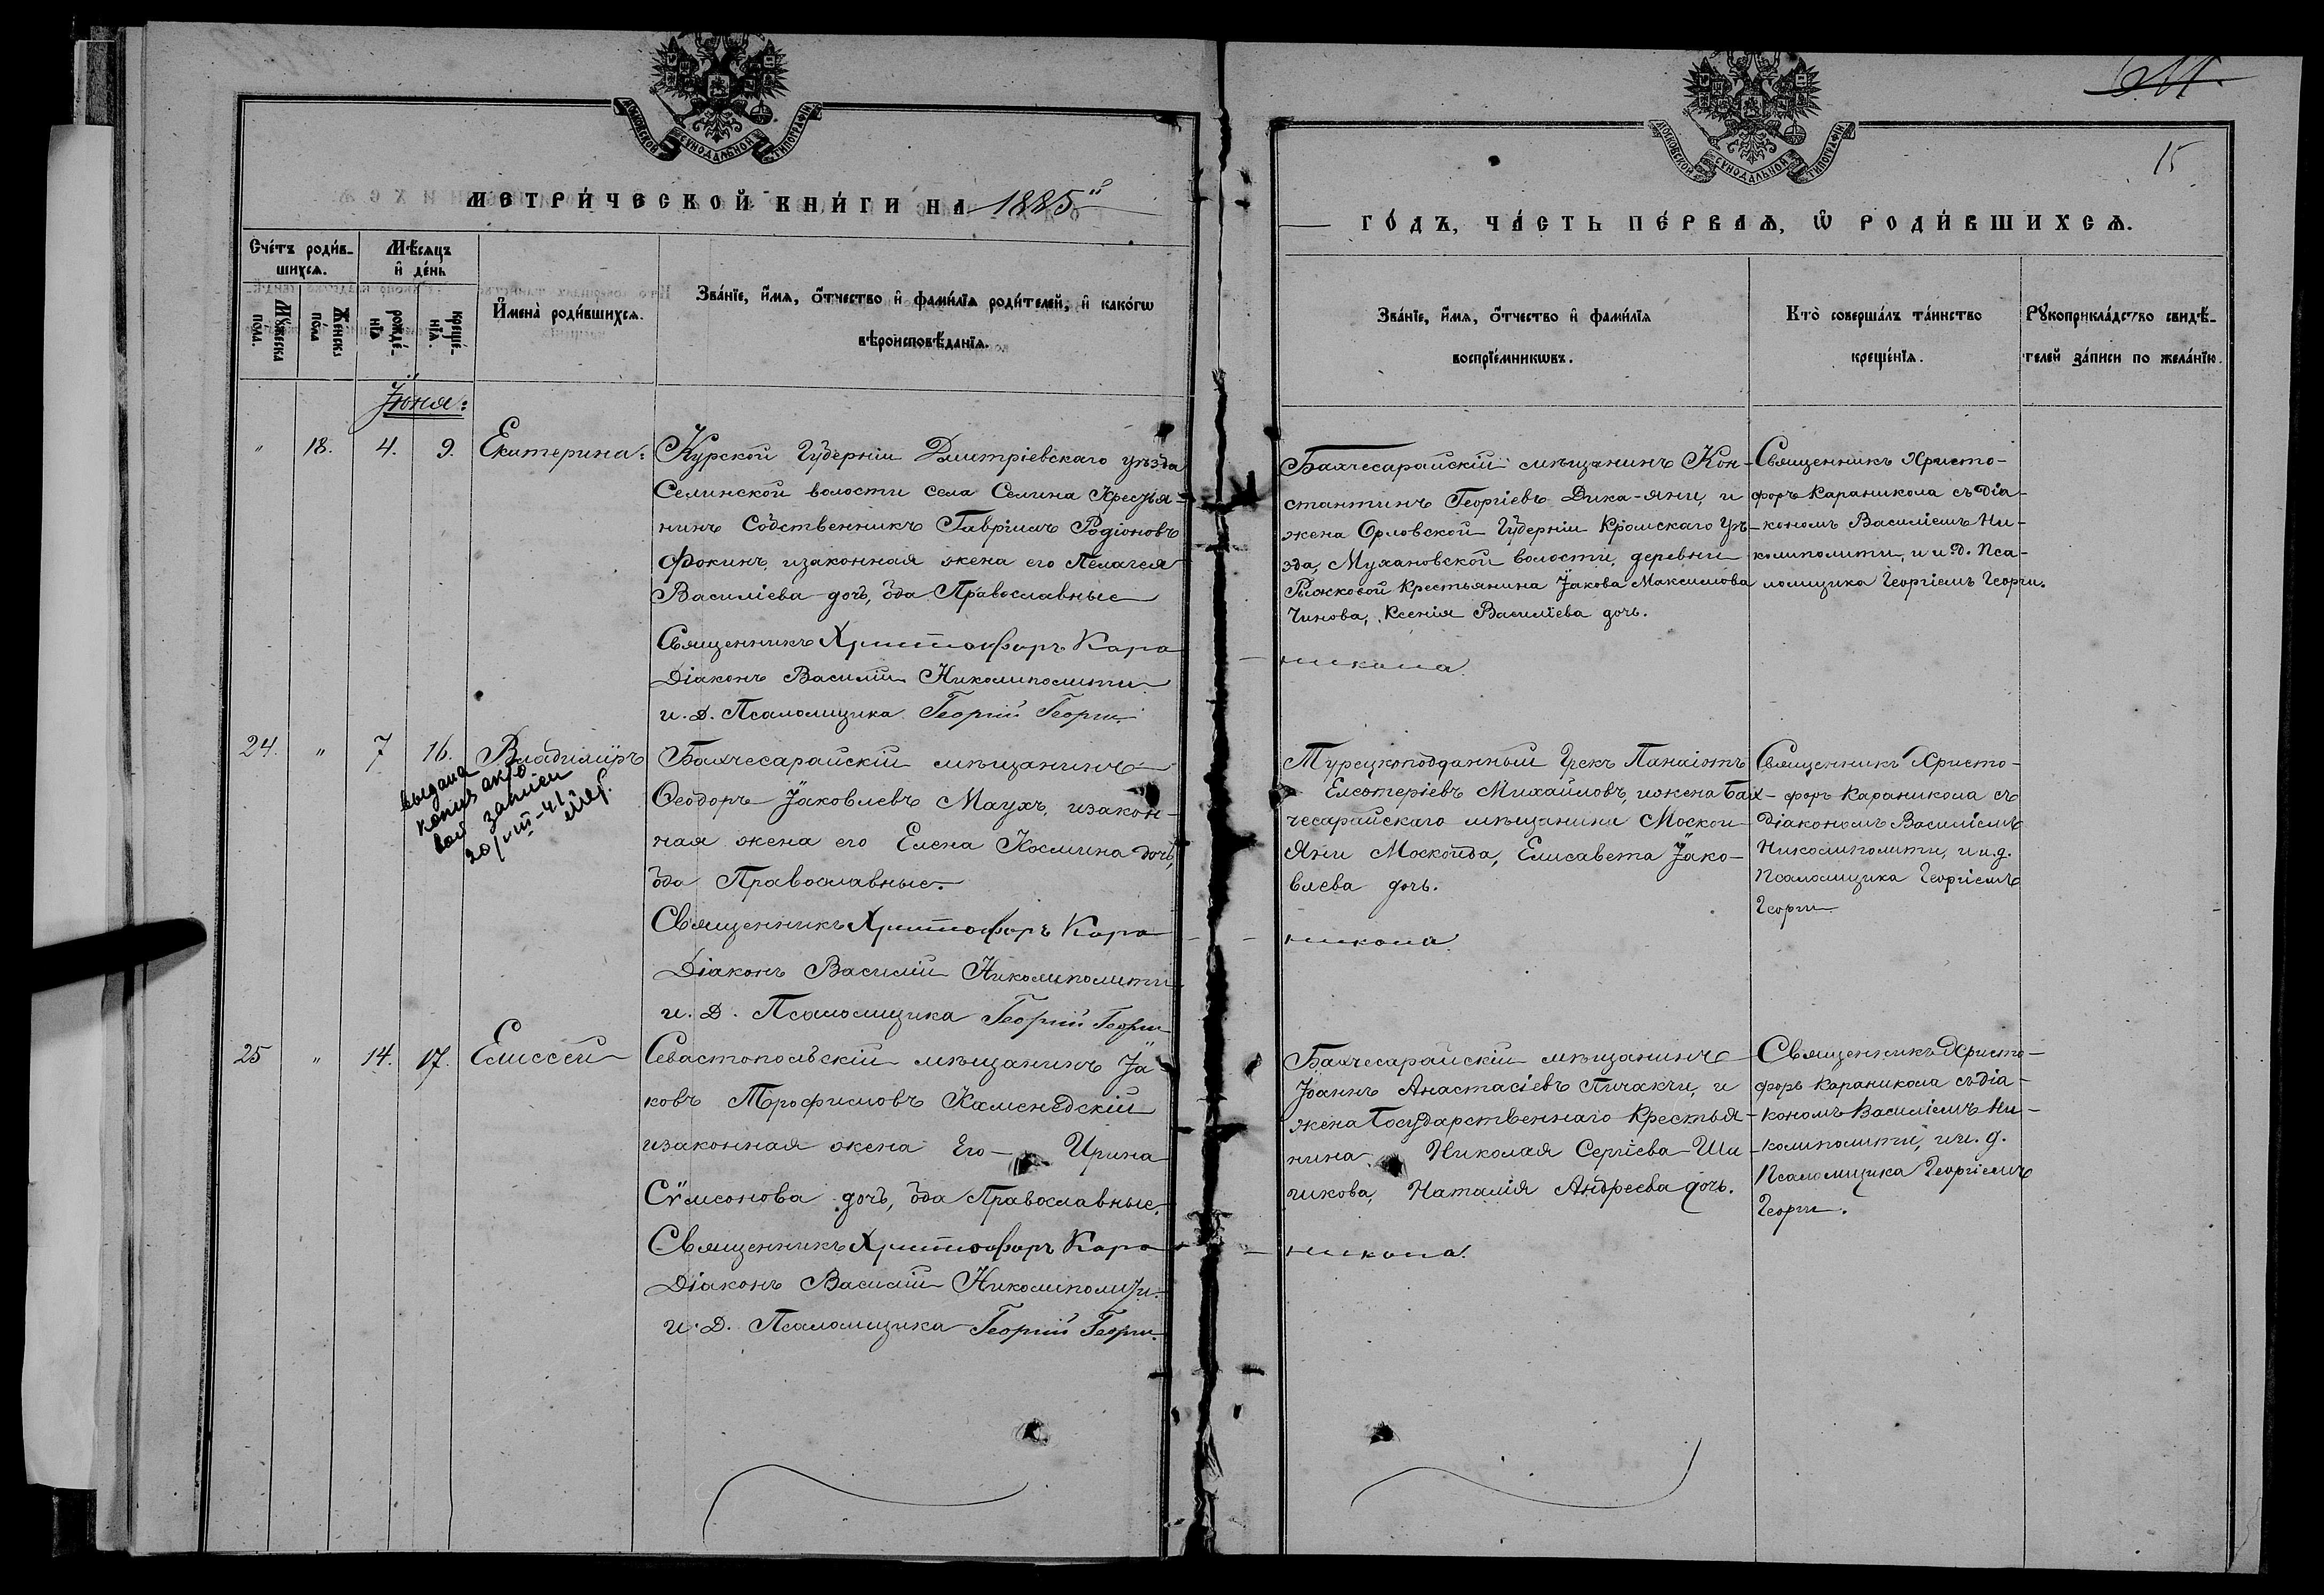 МОСКОВСКОЙ СѴНОДАЛЬНОЙ ТИПОГРАФІИ
МЕТРИ́ЧЕСКОЙ КНИ́ГИ НА 1885й
Сче́тъ роди́в-
шихсѧ.
Мѣ́сѧцъ
и҆ де́нь
Мꙋ́жеска
по́ла.
Же́нска
по́ла
рожде́-
нїѧ
креще́-
нїѧ.
И҆мена̀ роди́вшихсѧ.
Зва́нїе, и҆́мѧ, ѻ҆́тчество и҆ фами́лїѧ роди́телей, и҆ како́гѡ
вѣроисповѣ́данїѧ.
Іюня:
" 18. 4. 9. Екатерина:
Курской Губерніи Дмитріевскаго уѣзда
Селинской волости села Селина Крестья-
нинъ Собственникъ Гавріилъ Родіоновъ
Фокинъ, изаконная жена его Пелагея
Василіева дочь, оба Православные
Священникъ Христофоръ Кара
Діаконъ Василій Николиполити
и. Д. Псаломщика Георгій Георги.
24. " 7 16. Владиміръ
выдана
копия акто
вой записи
20/VIII-41 г.
Бахчесарайскій мѣщанинъ
Ѳеодоръ Іаковлевъ Маухъ, изакон-
ная жена его Елена Космина дочь,
оба Православные.
Священникъ Христофоръ Кара
Діаконъ Василій Николиполити
и. Д. Псаломщика Георгій Георги
25 " 14. 17. Елиссей
Севастопольскій мѣщанинъ Іа-
ковъ Трофимовъ Каменедскій
изаконная жена Его — Ирина
Сѵмеонова дочь, оба Православные.
Священникъ Христофоръ Кара
Діаконъ Василій Николиполити.
и. Д. Псаломщика Георгій Георги.
МОСКОВСКОЙ СѴНОДАЛЬНОЙ ТИПОГРАФІИ
15
ГО́ДЪ, ЧА́СТЬ ПЕ́РВАѦ, Ѡ҆ РОДИ́ВШИХСѦ.
Зва́нїе, и҆́мѧ, ѻ҆́тчество и҆ фами́лїѧ
воспрїе́мникѡвъ.
Кто̀ соверша́лъ та́инство
креще́нїѧ.
Рꙋкоприкла́дство свидѣ́-
телей за́писи по жела́нїю.
Бахчесарайскій мѣщанинъ Кон-
стантинъ Георгіевъ Дика-яни, и
жена Орловской Губерніи Кромскаго уѣ-
зда, Мухановской волости, деревни
Рыжковой Крестьянина Іакова Максимова
Чинова, Ксенія Василіева дочь.
никола
Священникъ Христо-
форъ Караникола съ Діа-
кономъ Василіемъ Ни-
колиполити, и и. Д. Пса-
ломщика Георгіемъ Георги.
Турецкоподданный Грекъ Панаіотъ
Елевтеріевъ Михайловъ, и жена Бах-
чесарайскаго мѣщанина Москои
Яни Москоида, Елисавета Іако-
влева дочь.
никола
Священникъ Христо-
форъ Караникола съ
Діакономъ Василіемъ
Николиполити, и и. д.
Псаломщика Георгіемъ
Георги
Бахчесарайскій мѣщанинъ
Іоаннъ Анастасіевъ Пичакчи, и
жена Государственнаго Крестья-
нина Николая Сергіева Ши-
шкова, Наталія Андреева дочь.
никола.
Священникъ Христо-
форъ Караникола съ Діа-
кономъ Василіемъ Ни-
колиполити, и и. д.
Псаломщика Георгіемъ
Георги.